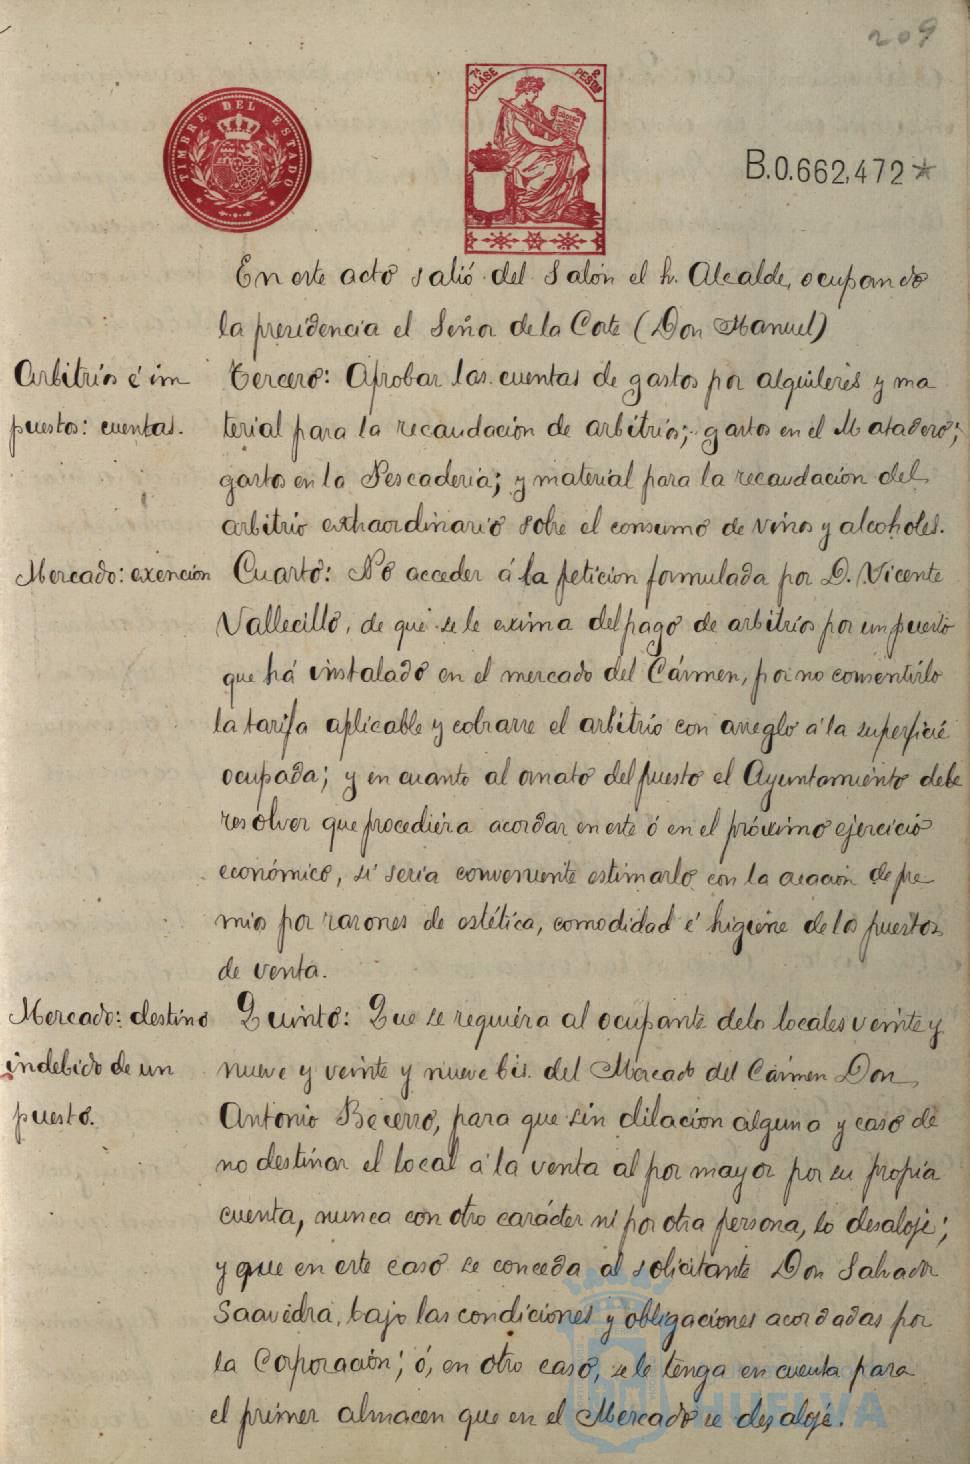 209
TIMBRE DEL ESTADO
7ª CLASE
PESETAS
B.0.662,472*
En este acto salió del Salón el Sr. Alcalde, ocupando
la presidencia el Señor de la Corte (Don Manuel)
Arbitrios é im
puestos: cuentas.
Tercero: Aprobar las cuentas de gastos por alquileres y ma
terial para la recaudación de arbitrios; gastos en el Matadero;
gastos en la Pescaderia; y material para la recaudación del
arbitrio extraordinario sobre el consumo de vinos y alcoholes.
Mercado: exención
Cuarto: No acceder á la petición formulada por D. Vicente
Vallecillo, de que se le exima del pago de arbitrios por un puesto
que há instalado en el mercado del Cármen, por no consentirlo
la tarifa aplicable y cobrarse el arbitrio con arreglo á la superficie
ocupada; y en cuanto al ornato del puesto el Ayuntamiento debe
resolver que procediera acordar en este ó en el próximo ejercicio
económico, si seria conveniente estimarlo con la creación de pre
mios por razones de estética, comodidad é higiene de los puestos
de venta.
Mercado: destino
indebido de un
puesto.
Quinto: Que se requiera al ocupante de los locales veinte y
nueve y veinte y nueve bis. del Mercado del Cármen Don
Antonio Becerro, para que sin dilacion alguna y caso de
no destinar el local á la venta al por mayor por su propia
cuenta, nunca con otro carácter ni por otra persona, lo desaloje;
y que en este caso se conceda al solicitante Don Salvador
Saavedra, bajo las condiciones y obligaciones acordadas por
la Corporación; ó, en otro caso, se le tenga en cuenta para
el primer almacen que en el Mercado se desaloje.
HUELVA